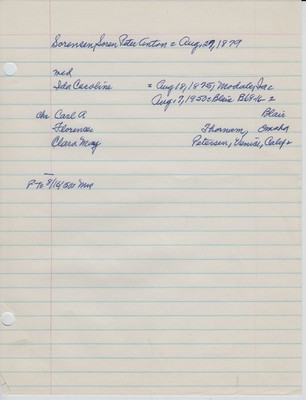 Sorensen, Soren Peter Anton = Aug, 29, 1879
md
Ida Caroline = Aug 18, 1875, Modale, Iac
Aug, 7, 1950 = Blair B68-16-2
chr Carl A Blair
Florence Thomsen, Omaha
Clara May Petersen, Venice, Calif
P To 8/14/50